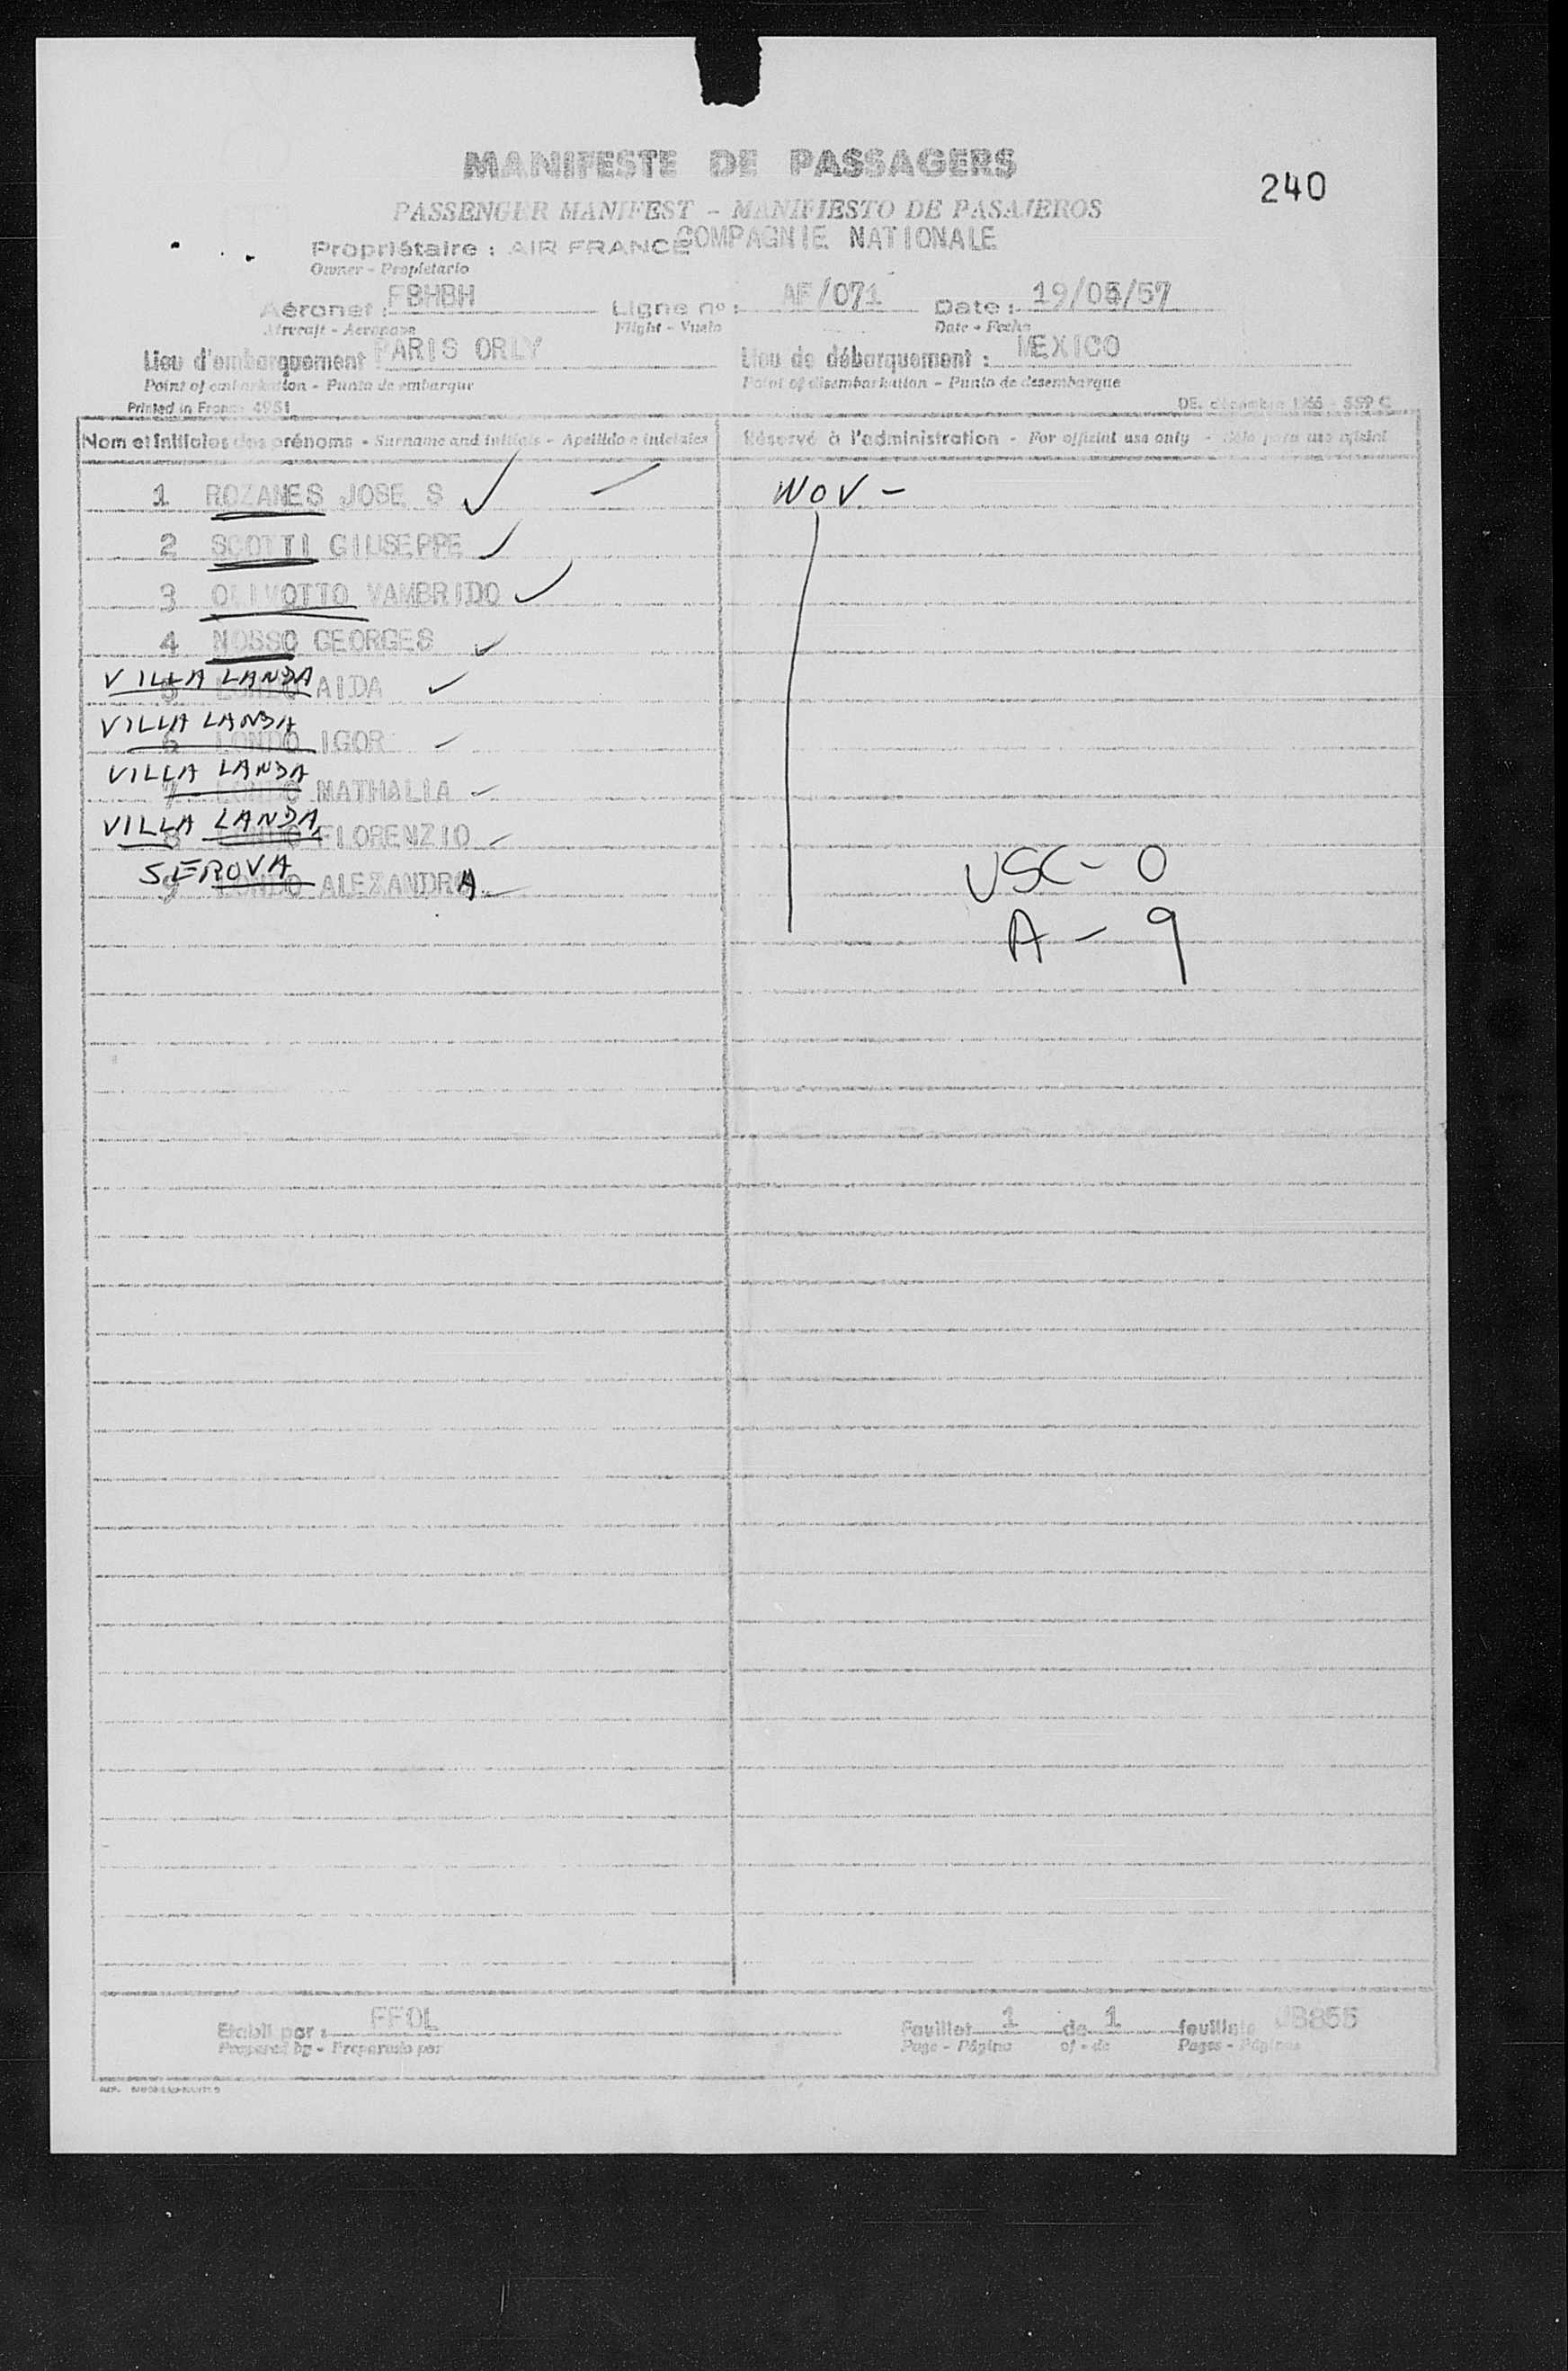 MANIFESTE DE PASSAGERS
240
PASSENGER MANIFEST - MANIFIESTO DE PASAJEROS
Propriétaire : AIR FRANCE COMPAGNIE NATIONALE
Owner - Propietario
Aéronef : FBHBH Ligne no : AF/071 Date : 19/05/57
Aircraft - Aeronave Flight - Vuelo Date - Fecha
Lieu d'embarquement PARIS ORLY Lieu de débarquement : MEXICO
Point of embarkation - Punto de embarque Point of disembarkation - Punto de desembarque
Printed in France 4951 DE. décembre
Nom et initiales des prénoms - Surname and initials - Apellido e iniciales Réservé à l'administration - For official use only - Sólo para uso oficial
1 ROZANES JOSE S ✓ WOV -
2 SCOTTI GIUSEPPE ✓
3 OLIVOTTO VAMBRIDO ✓
4 NOSSO GEORGES ✓
VILLA LANDA
5 LONDO AIDA ✓
VILLA LANDA
6 LONDO IGOR ✓
VILLA LANDA
7 LONDO NATHALIA ✓
VILLA LANDA
8 LONDO FLORENZIO ✓
SEROVA
9 LONDO ALEZANDRA ✓
USC - 0
A - 9
Etabli par : FFOL Feuillet 1 de 1 feuillets
Prepared by - Preparado por Page - Página of - de Pages - Páginas